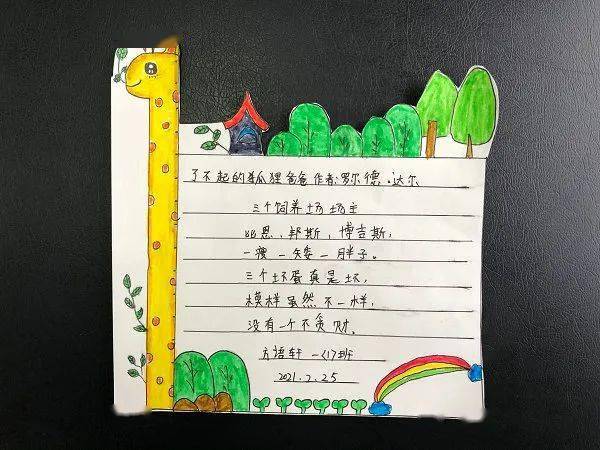 了不起的狐狸爸爸 作者:罗尔德.达尔
三个饲养场场主
比恩、邦斯、博吉斯,
一瘦一矮一胖子。
三个坏蛋真是坏,
模样虽然不一样,
没有一个不贪财。
方语轩 一〈1〉班
2021.2.25